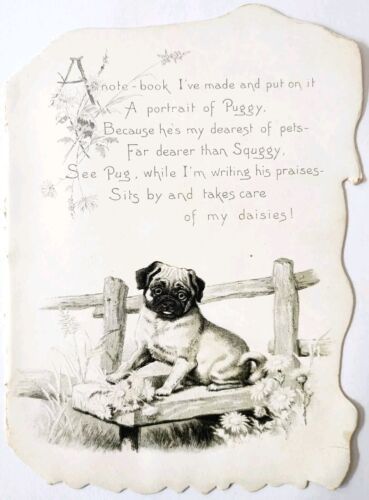 A note-book I've made and put on it
A portrait of Puggy.
Because he's my dearest of pets-
Far dearer than Squggy.
See Pug, while I'm writing his praises-
Sits by and takes care
of my daisies!